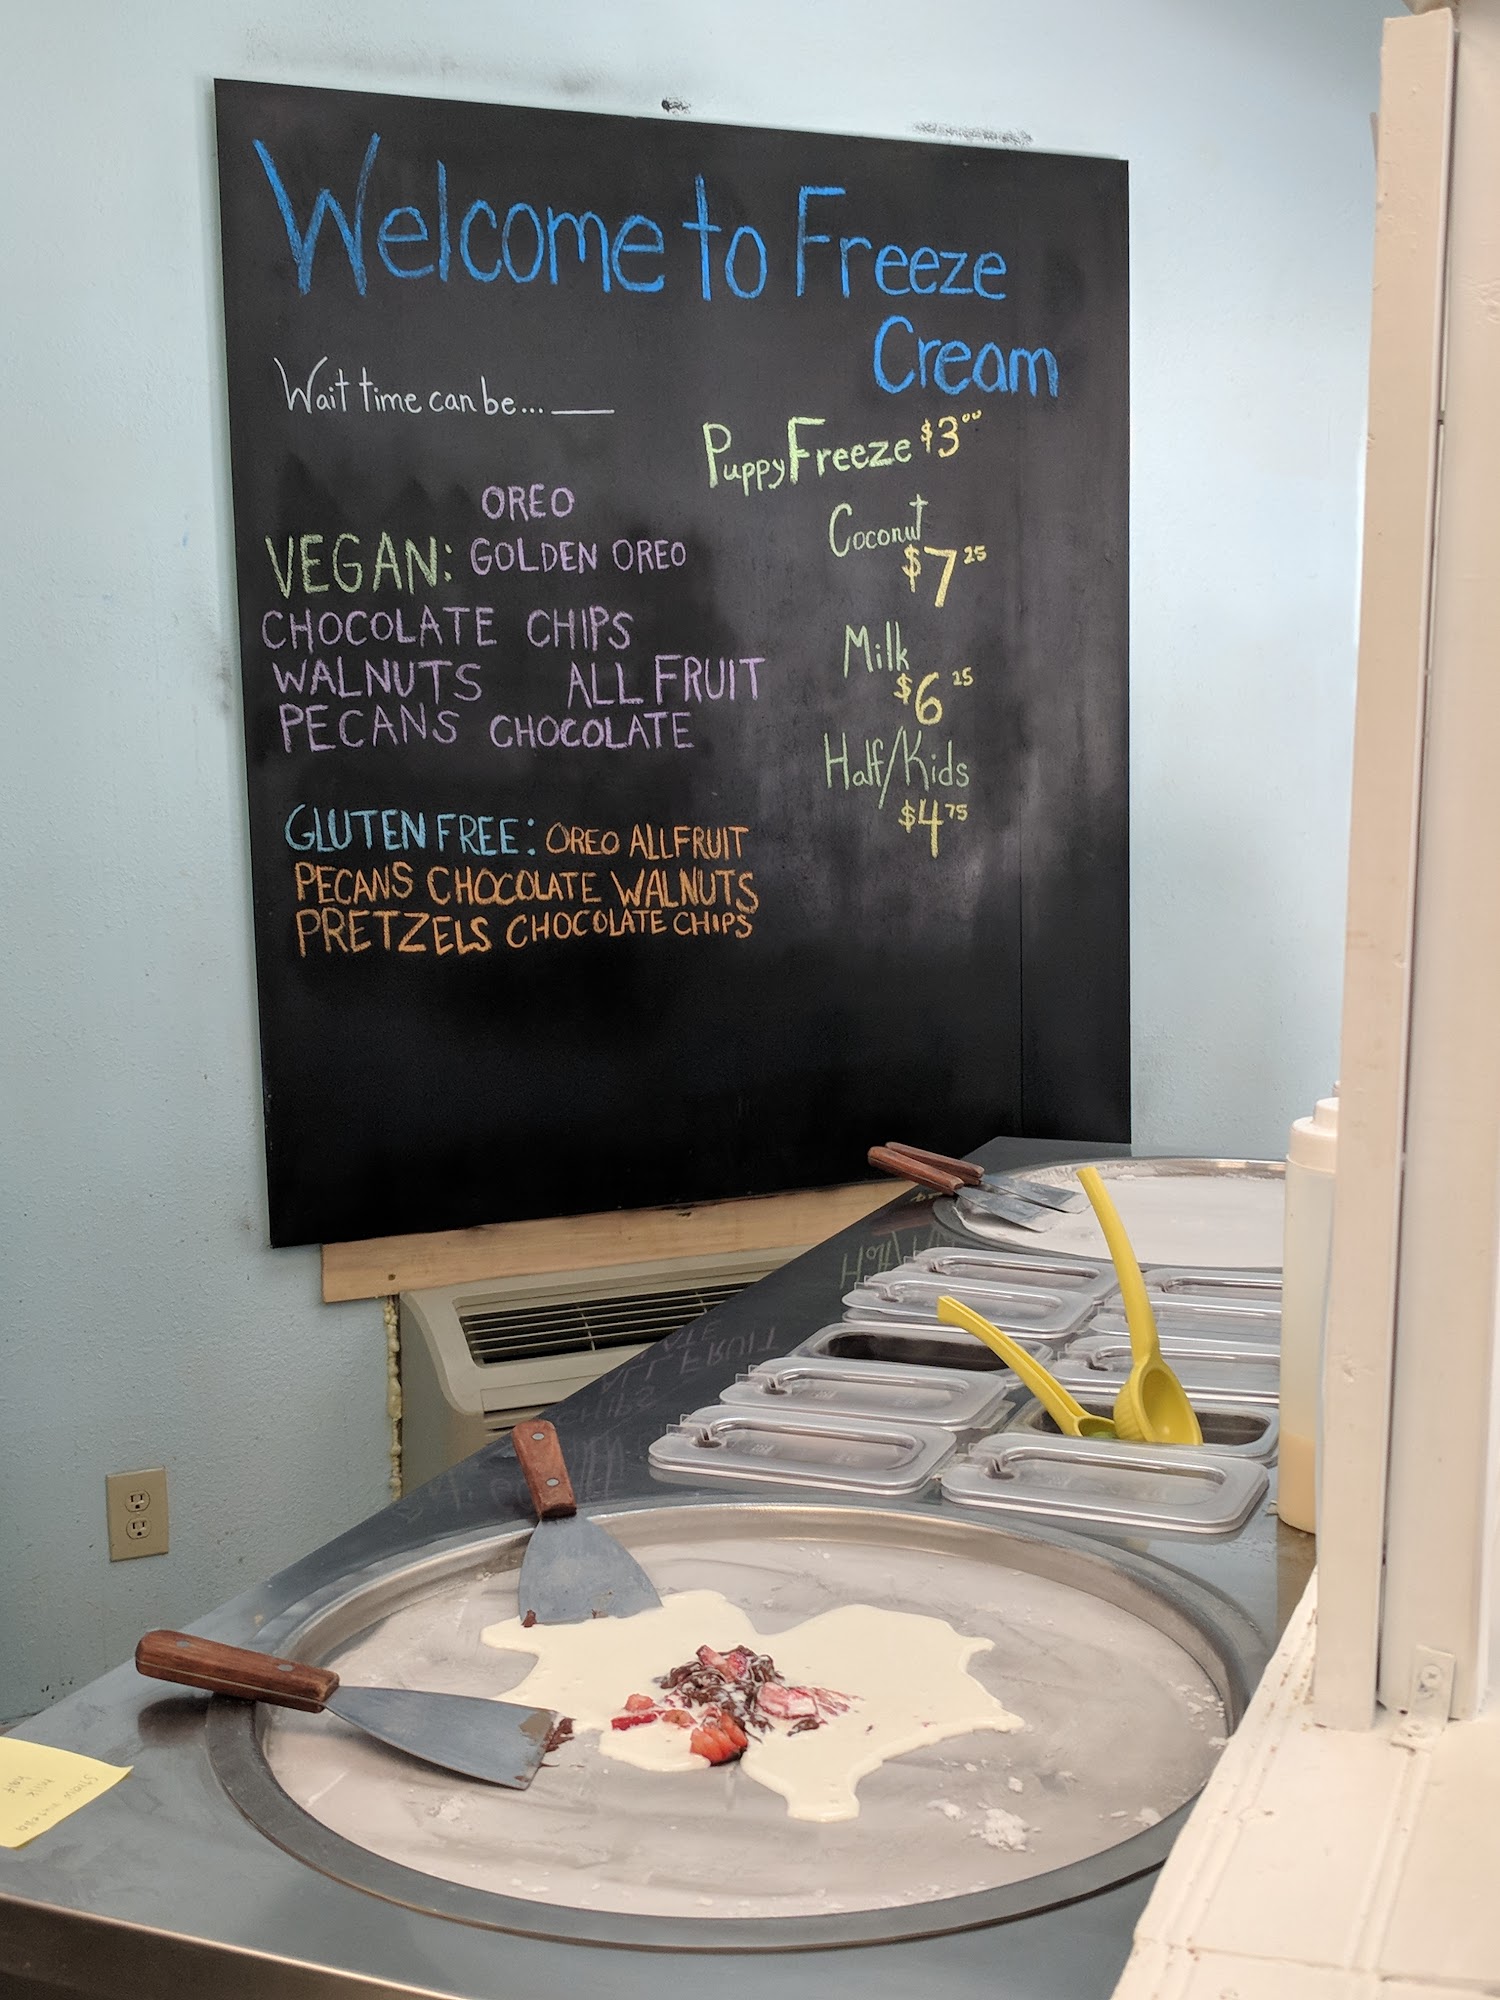 Welcome to Freeze
Cream
Wait time can be... ___
Puppy Freeze $3.00
Coconut
$7 25
Milk
$6 25
Half/Kids
$4 75
OREO
VEGAN: GOLDEN OREO
CHOCOLATE CHIPS
WALNUTS ALL FRUIT
PECANS CHOCOLATE
GLUTEN FREE: OREO ALL FRUIT
PECANS CHOCOLATE WALNUTS
PRETZELS CHOCOLATE CHIPS